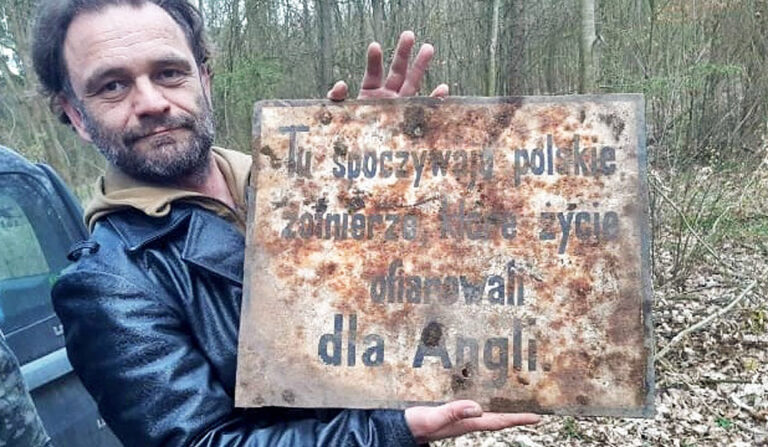 Tu spoczywają polskie
żołnierze, które życie
ofiarowali
dla Angli.